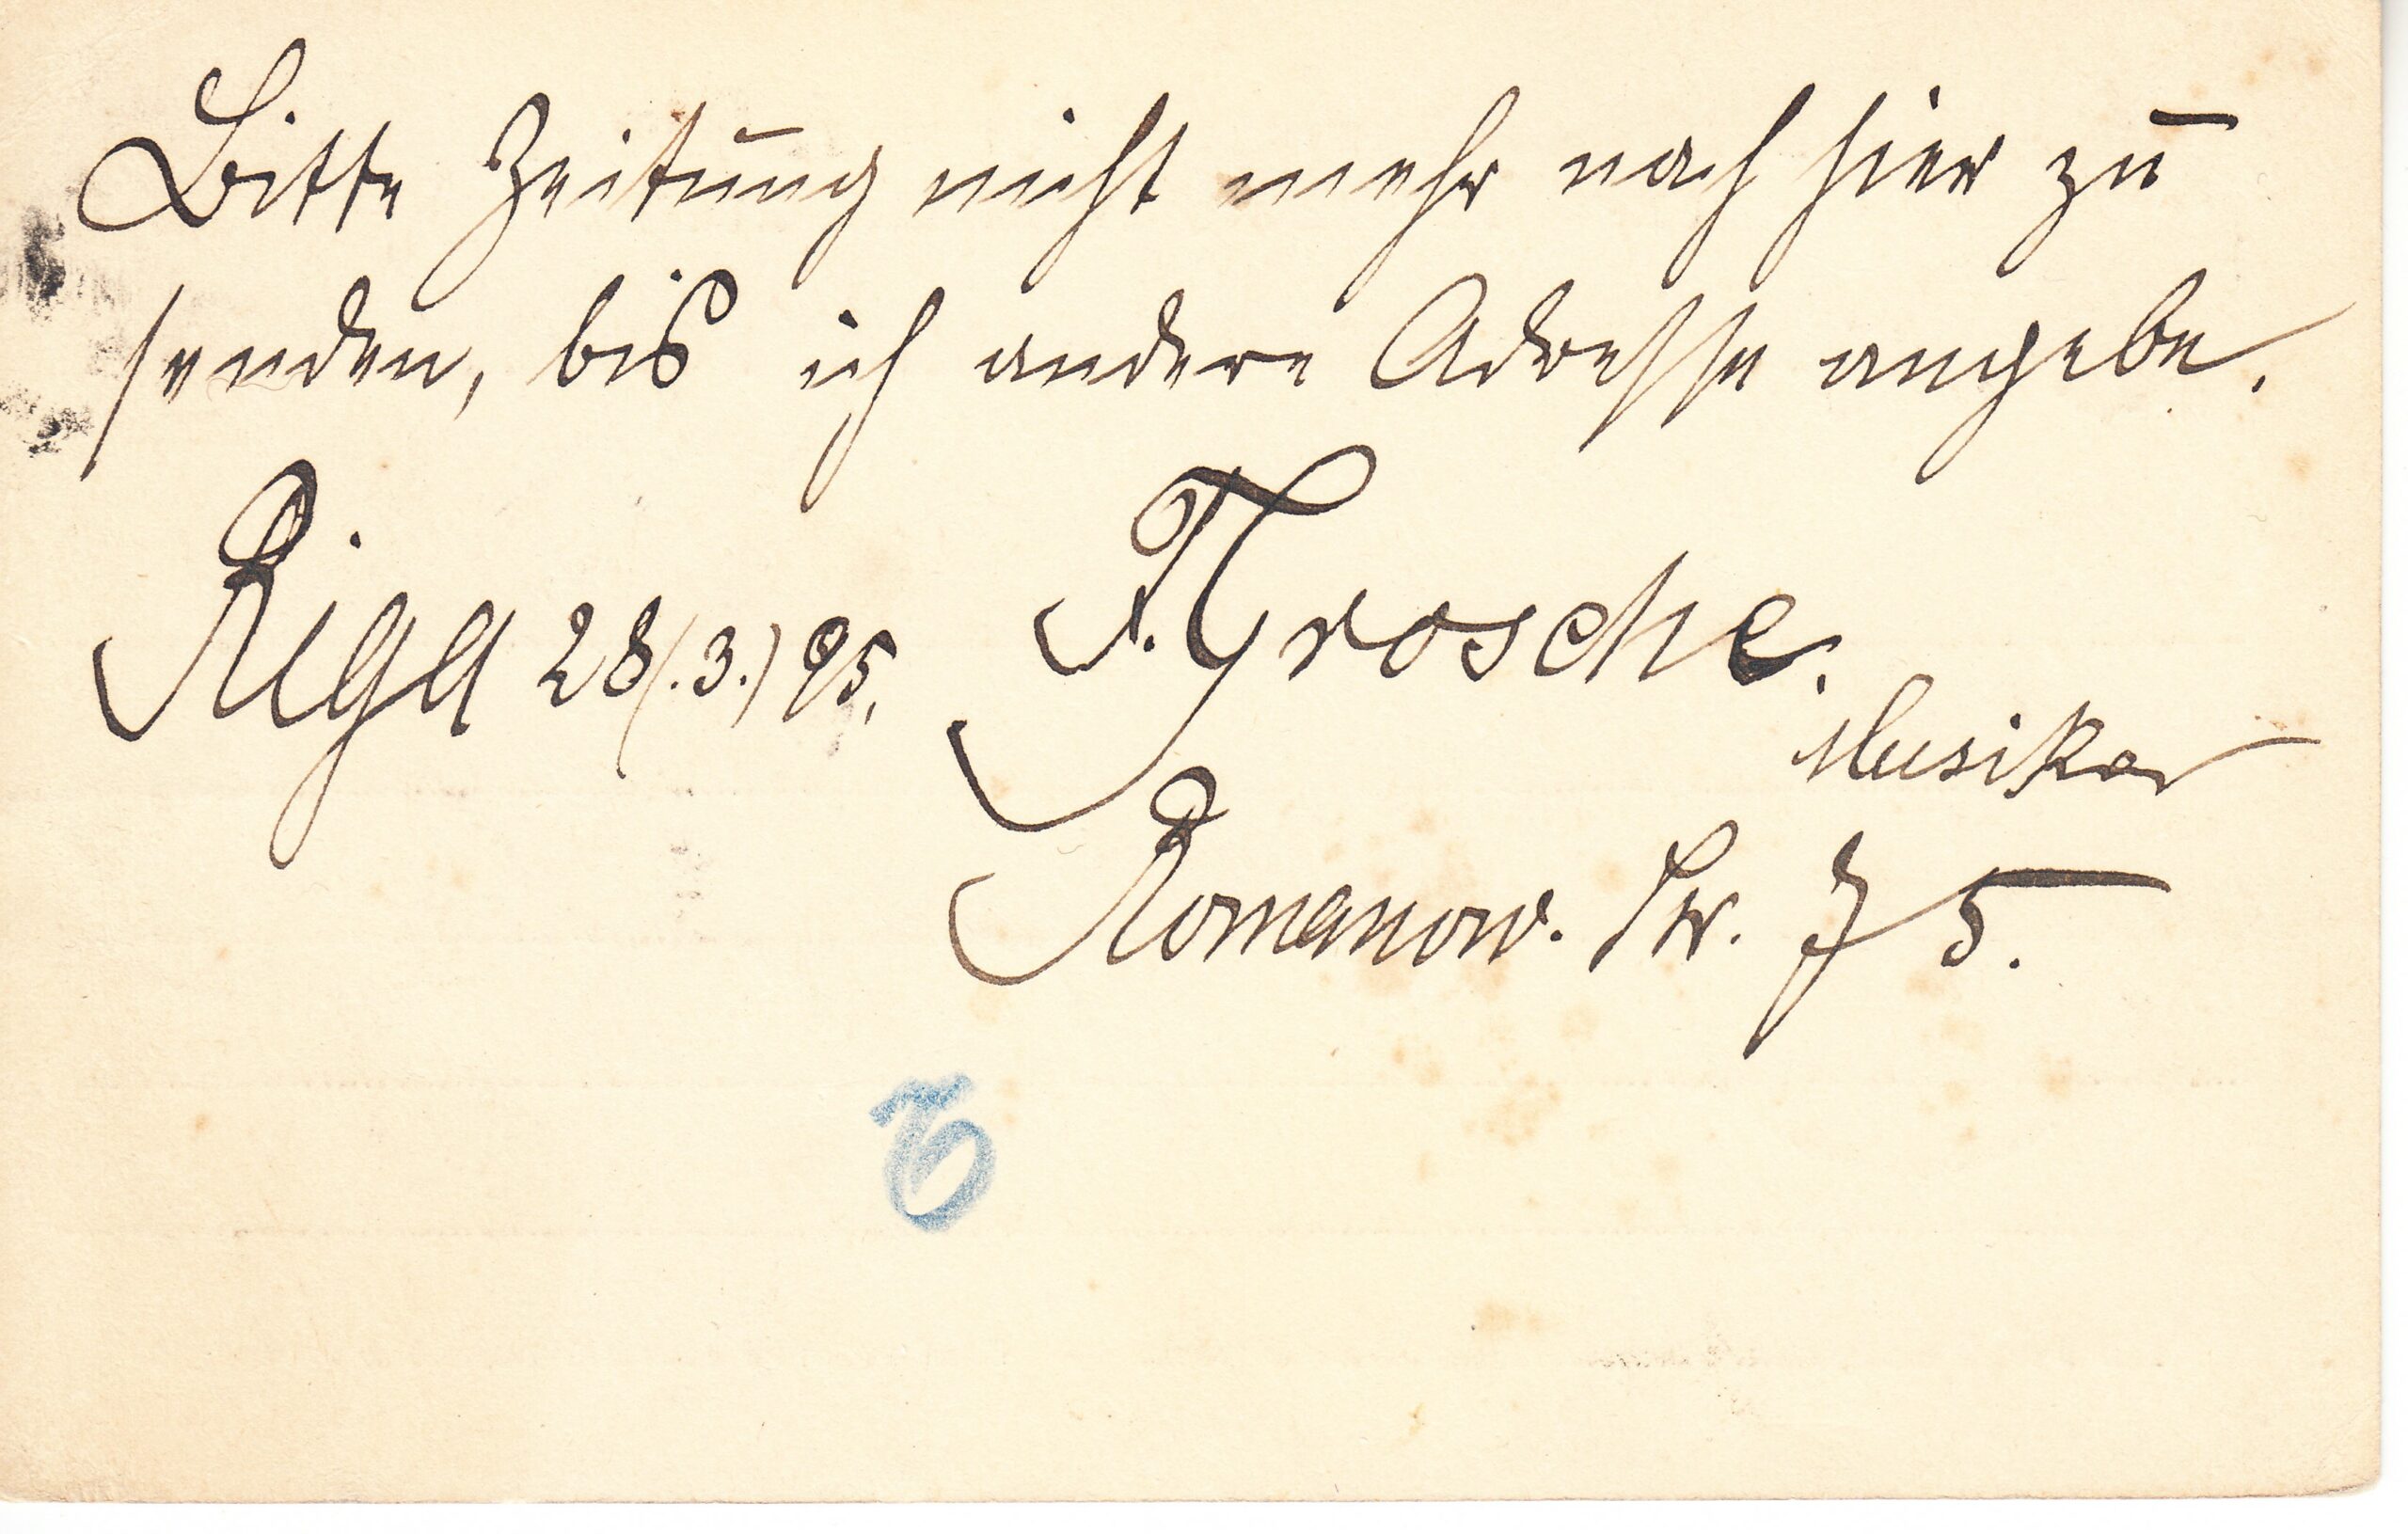 Bitte Zeitung nicht mehr nach hier zu
senden, bis ich andere Adresse angebe.
Riga 28(.3.) 95. Grosche.
Musiker
Romanow. Str. 75.